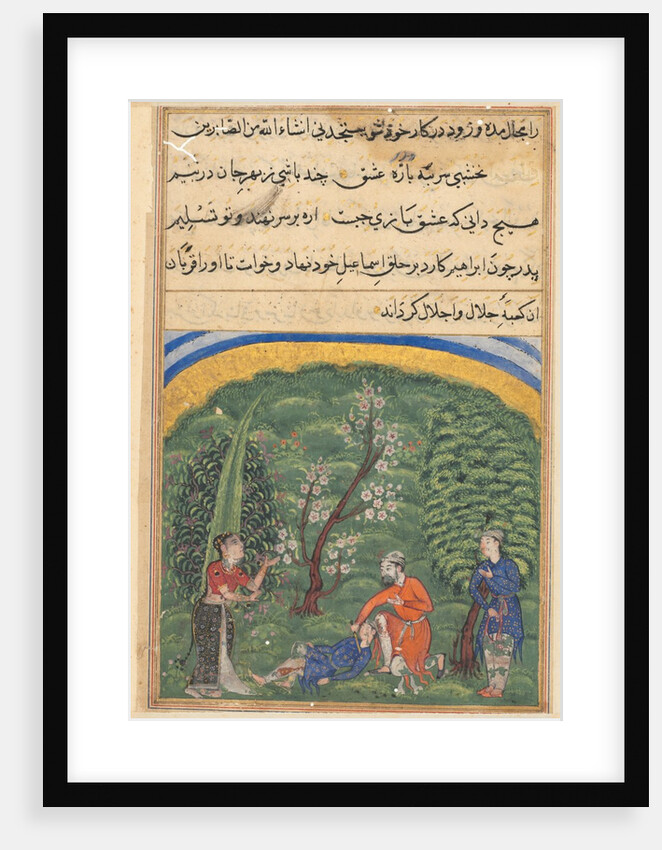 را مجال مده و زود در کار خود شو ستجدنی انشاء الله من الصابرین
نخشبی سر بنه براه عشق چند باشی ز بهر جان در بیم
هیچ دانی که عشق بازی چیست اره بر سر نهند و تو تسلیم
پدر چون ابراهیم کارد بر حلق اسماعیل خود نهاد و خواست تا او را قربان
ان کعبهٔ جلال و اجلال گرداند